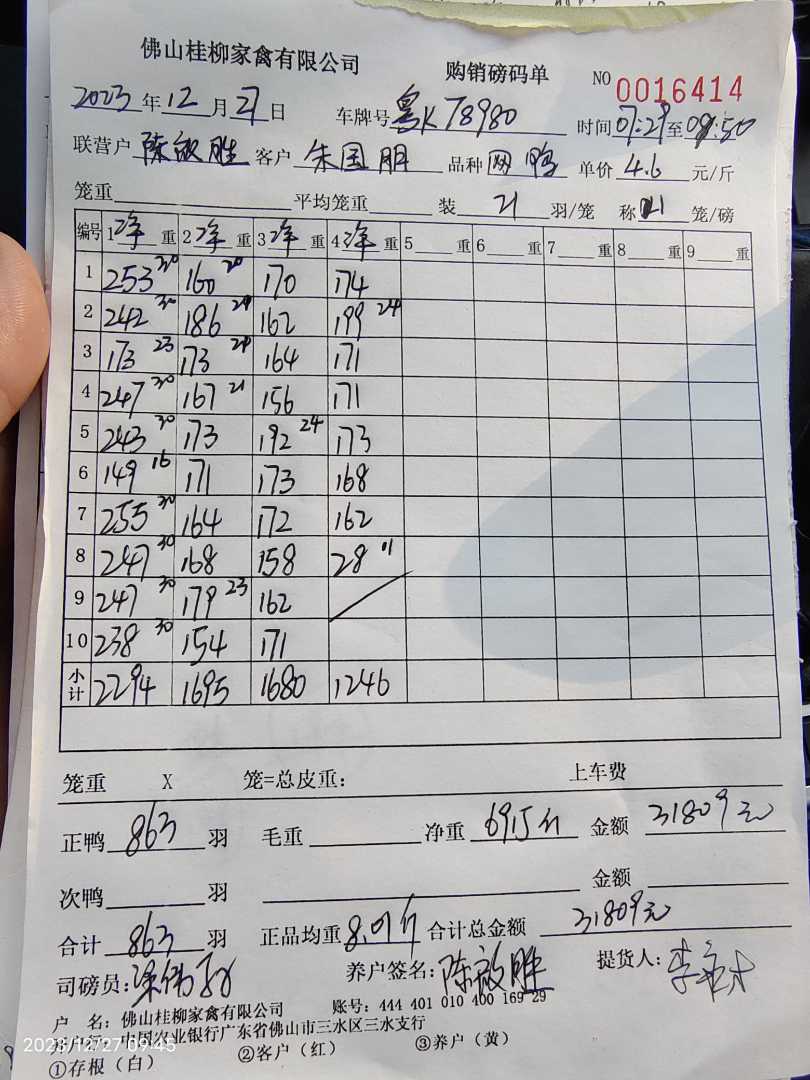 佛山桂柳家禽有限公司 购销磅码单 NO 0016414
2023年12月27日 车牌号粤K78980 时间07:29至09:50
联营户 陈敬胜 客户 朱国朋 品种 网鸭 单价 4.6 元/斤
笼重 平均笼重 装 21 羽/笼 称 1 笼/磅
编号 1净重 2净重 3净重 4净重 5 重 6 重 7 重 8 重 9 重
1 253 30 160 20 170 174
2 242 30 186 24 162 199 24
3 173 23 173 24 164 171
4 247 30 167 21 156 171
5 243 30 173 192 24 173
6 149 16 171 173 168
7 255 30 164 172 162
8 247 30 168 158 28 11
9 247 30 179 23 162
10 238 30 154 171
小计 2294 1695 1680 1246
笼重 X 笼=总皮重: 上车费
正鸭 863 羽 毛重 净重 6915斤 金额 31809元
次鸭 羽 金额
合计 863 羽 正品均重 8.01斤 合计总金额 31809元
司磅员: 养户签名: 陈敬胜 提货人:
户 名: 佛山桂柳家禽有限公司 账号: 444 401 010 400 169 29
中国农业银行广东省佛山市三水区三水支行
2023/12/27 09:45
①存根（白） ②客户（红） ③养户（黄）